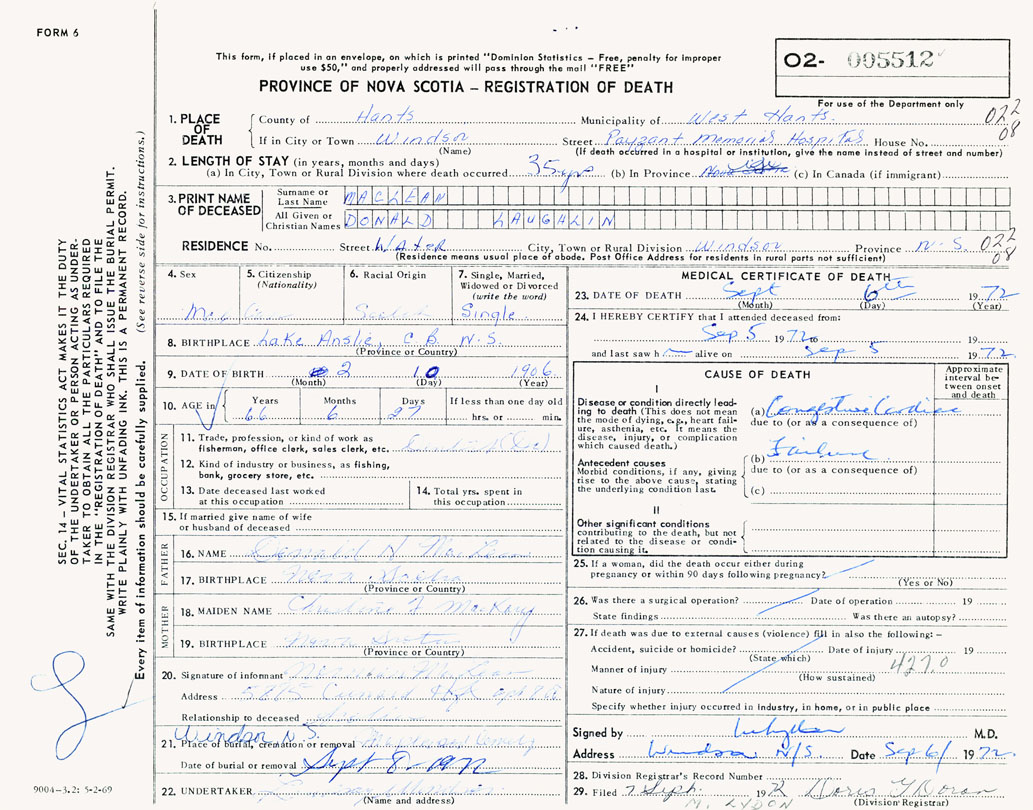 FORM 6
This form, if placed in an envelope, on which is printed "Dominion Statistics – Free, penalty for improper
use $50," and properly addressed will pass through the mail "FREE"
PROVINCE OF NOVA SCOTIA – REGISTRATION OF DEATH
02- 005512
For use of the Department only
022
08
1. PLACE OF DEATH
County of Hants Municipality of West Hants.
If in City or Town Windsor Street Payzant Memorial Hospital House No.
(Name) (If death occurred in a hospital or institution, give the name instead of street and number)
2. LENGTH OF STAY (in years, months and days)
(a) In City, Town or Rural Division where death occurred 35 yrs (b) In Province (c) In Canada (if immigrant)
3. PRINT NAME OF DECEASED
Surname or Last Name MACLEAN
All Given or Christian Names DONALD LAUGHLIN
RESIDENCE No. Street Water City, Town or Rural Division Windsor Province N.S. 022
08
(Residence means usual place of abode. Post Office Address for residents in rural parts not sufficient)
4. Sex
5. Citizenship (Nationality)
6. Racial Origin
7. Single, Married, Widowed or Divorced (write the word)
Single
8. BIRTHPLACE Lake Anslie, C.B. N.S.
(Province or Country)
9. DATE OF BIRTH 2 10 1906
(Month) (Day) (Year)
10. AGE in
Years Months Days If less than one day old
66 6 27 hrs. or min.
OCCUPATION
11. Trade, profession, or kind of work as
fisherman, office clerk, sales clerk, etc.
12. Kind of industry or business, as fishing,
bank, grocery store, etc.
13. Date deceased last worked
at this occupation
14. Total yrs. spent in
this occupation
15. If married give name of wife
or husband of deceased
FATHER
16. NAME
17. BIRTHPLACE Nova Scotia
(Province or Country)
MOTHER
18. MAIDEN NAME
19. BIRTHPLACE Nova Scotia
(Province or Country)
20. Signature of informant
Address
Relationship to deceased
Windsor N.S.
21. Place of burial, cremation or removal
Date of burial or removal Sept 8 - 1972
22. UNDERTAKER
(Name and address)
MEDICAL CERTIFICATE OF DEATH
23. DATE OF DEATH Sept 6th 1972
(Month) (Day) (Year)
24. I HEREBY CERTIFY that I attended deceased from:
Sep 5 1972 to
and last saw h alive on Sep 5 1972.
CAUSE OF DEATH
Approximate interval be-tween onset and death
I
Disease or condition directly lead-
ing to death (This does not mean
the mode of dying, e.g., heart fail-
ure, asthenia, etc. It means the
disease, injury, or complication
which caused death.)
(a) Congestive Cardiac
due to (or as a consequence of)
Antecedent causes
Morbid conditions, if any, giving
rise to the above cause, stating
the underlying condition last.
(b) Failure
due to (or as a consequence of)
(c)
II
Other significant conditions
contributing to the death, but not
related to the disease or condi-
tion causing it.
25. If a woman, did the death occur either during
pregnancy or within 90 days following pregnancy?
(Yes or No)
26. Was there a surgical operation? Date of operation 19
State findings Was there an autopsy?
27. If death was due to external causes (violence) fill in also the following: –
Accident, suicide or homicide? Date of injury 19
(State which) 427.0
Manner of injury
(How sustained)
Nature of injury
Specify whether injury occurred in industry, in home, or in public place
Signed by M.D.
Address Windsor N/S. Date Sep 6/ 1972.
28. Division Registrar's Record Number
29. Filed 7 Sept. 1972 Doris Y Doran
(Division Registrar)
M. LYDON
SEC. 14 – VITAL STATISTICS ACT MAKES IT THE DUTY
OF THE UNDERTAKER OR PERSON ACTING AS UNDER-
TAKER TO OBTAIN ALL THE PARTICULARS REQUIRED
IN THE "REGISTRATION OF DEATH" AND TO FILE THE
SAME WITH THE DIVISION REGISTRAR WHO SHALL ISSUE THE BURIAL PERMIT.
WRITE PLAINLY WITH UNFADING INK. THIS IS A PERMANENT RECORD.
Every item of information should be carefully supplied. (See reverse side for instructions.)
9004-3.2: 5-2-69